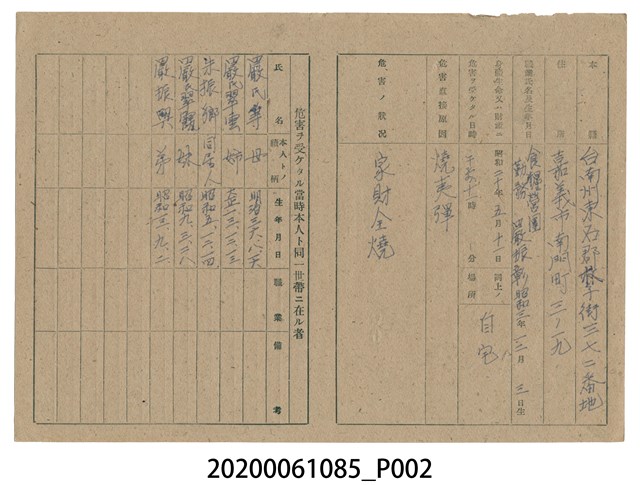 本籍 台南州東石郡朴子街三七二番地
住所 嘉義市南門町三ノ一九
職業氏名及生年月日 食糧營團勤務 嚴振彰 昭和三年三月三日生
身體生命又ハ財產ニ危害ヲ受ケタル日時 昭和二十年五月十一日 午前十一時 分
同上ノ場所 自宅
危害直接原因 燒夷彈
危害ノ狀況 家財全燒
危害ヲ受ケタル當時本人ト同一世帶ニ在ル者
氏名 本人トノ續柄 生年月日 職業 備考
嚴氏 母 明治
嚴氏翠雲 姉
朱振鄉 同居人 昭和五、二、一四
嚴氏翠霞 妹 昭和九、三、一八
嚴振興 弟 昭和三、九、二
20200061085_P002